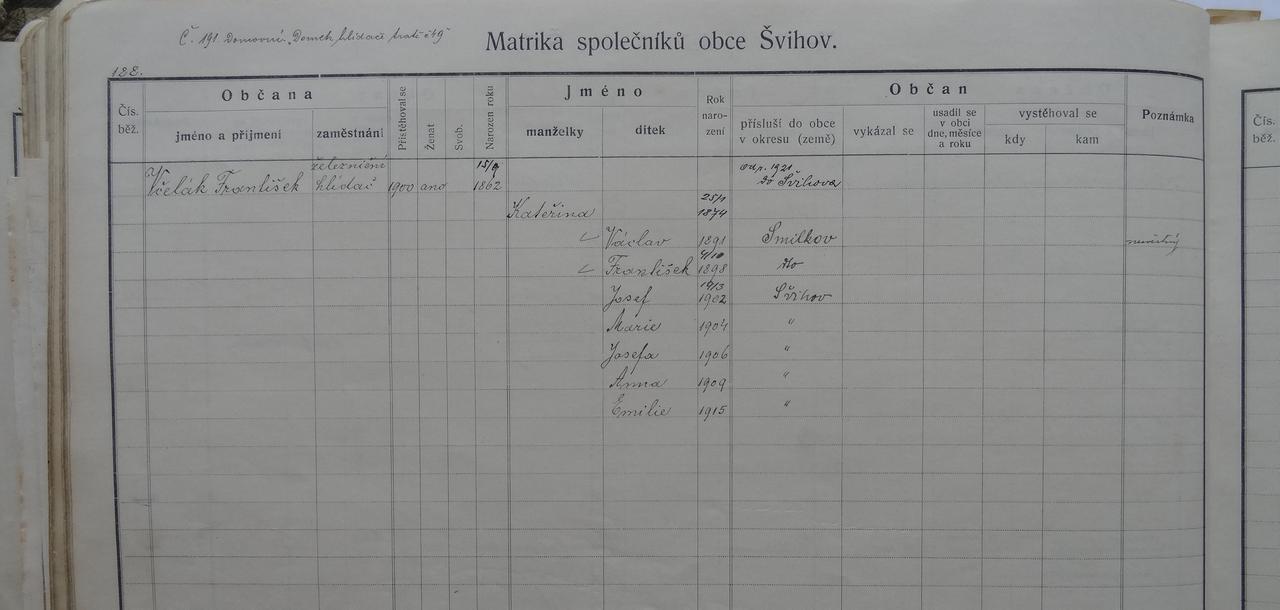 Č. 191. Domovní: "Domek hlídací trati č 49"
Matrika společníků obce Švihov.
188.
Čís. běž.
Občana
jméno a příjmení
zaměstnání
Přistěhoval se
Ženat
Svob.
Narozen roku
Jméno
manželky
dítek
Rok naro- zení
Občan
přísluší do obce v okresu (země)
vykázal se
usadil se v obci dne, měsíce a roku
vystěhoval se
kdy
kam
Poznámka
Čís. běž.
železniční 15/9 od r. 1921
Včelák František hlídač 1900 ano 1862 do Švihova
25/1
Kateřina 1874
Václav 1891 Smilkov
4/10
František 1898 dto
19/3
Josef 1902 Švihov
Marie 1904 "
Josefa 1906 "
Anna 1909 "
Emilie 1915 "